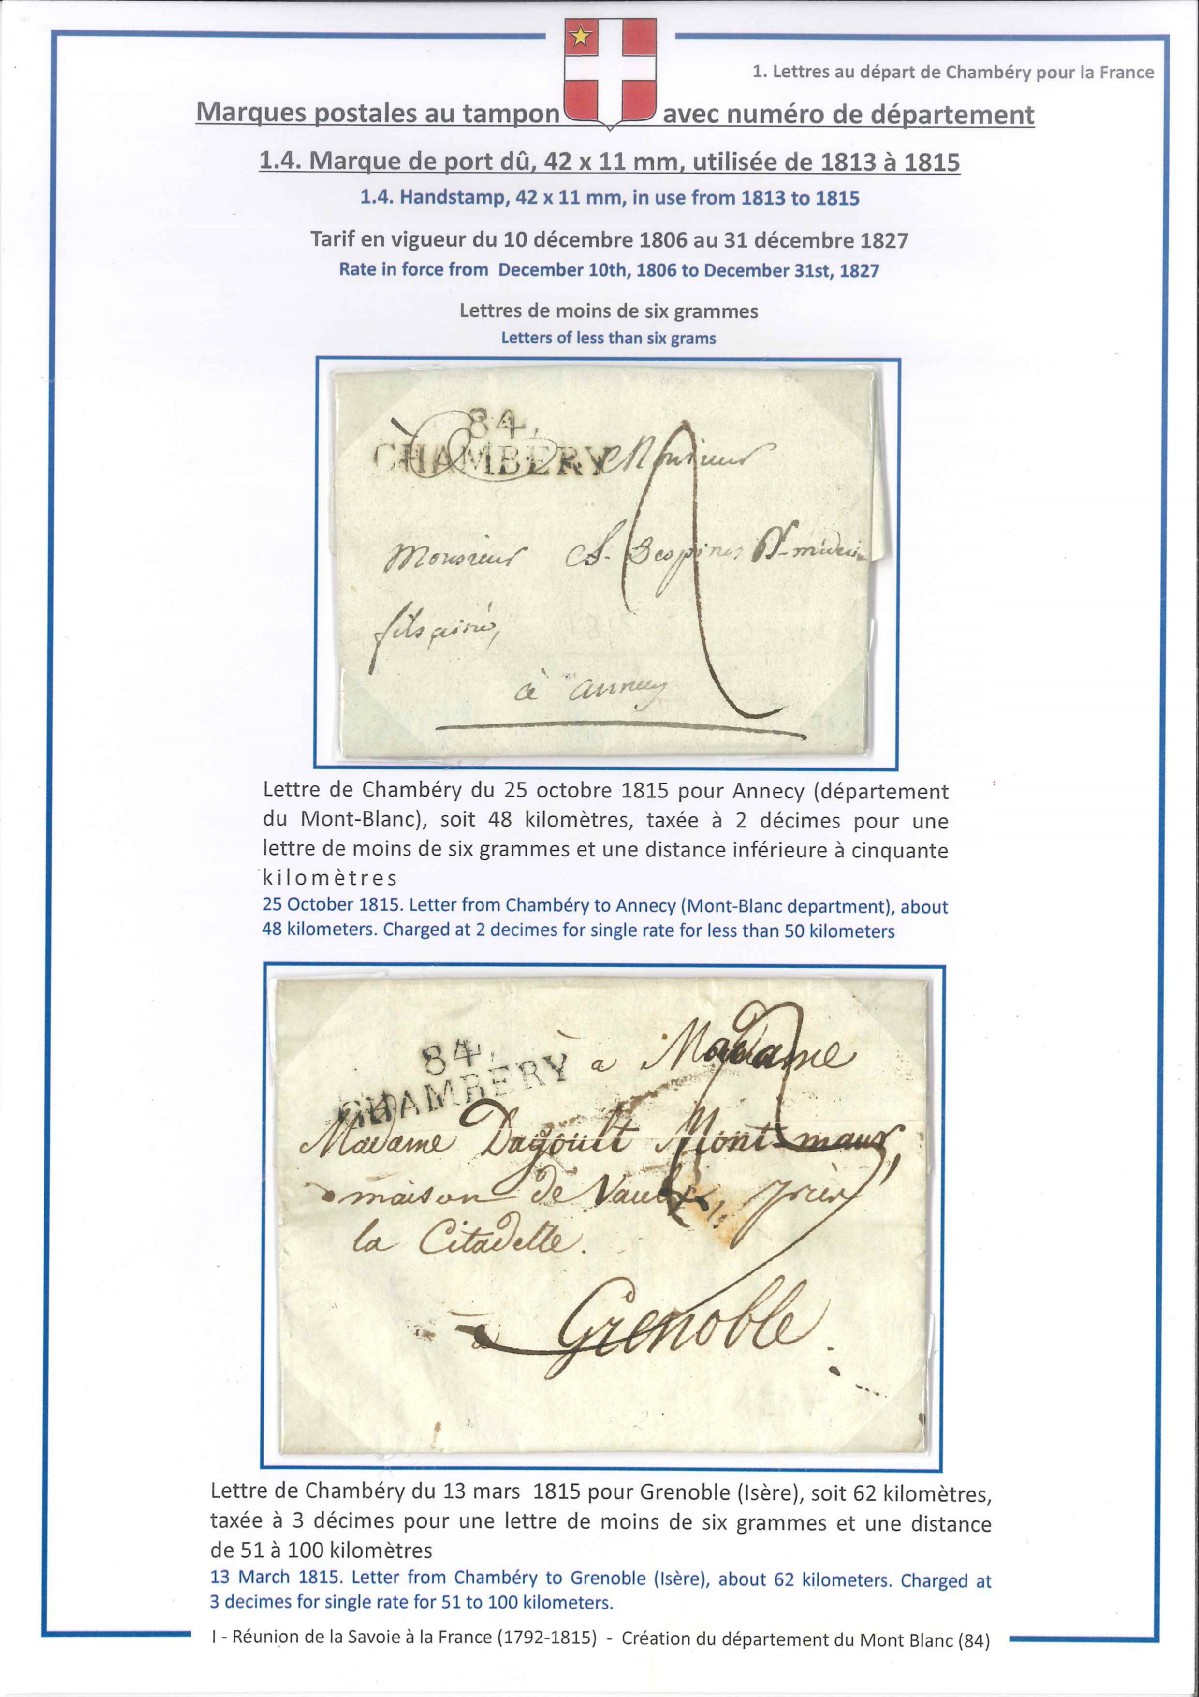 1. Lettres au départ de Chambéry pour la France
Marques postales au tampon avec numéro de département
1.4. Marque de port dû, 42 x 11 mm, utilisée de 1813 à 1815
1.4. Handstamp, 42 x 11 mm, in use from 1813 to 1815
Tarif en vigueur du 10 décembre 1806 au 31 décembre 1827
Rate in force from December 10th, 1806 to December 31st, 1827
Lettres de moins de six grammes
Letters of less than six grams
84,
CHAMBERY
à Monsieur
2
Monsieur Despines médecin
fils aîné,
à annecy
Lettre de Chambéry du 25 octobre 1815 pour Annecy (département
du Mont-Blanc), soit 48 kilomètres, taxée à 2 décimes pour une
lettre de moins de six grammes et une distance inférieure à cinquante
kilomètres
25 October 1815. Letter from Chambéry to Annecy (Mont-Blanc department), about
48 kilometers. Charged at 2 decimes for single rate for less than 50 kilometers
84,
CHAMBERY
à Madame
3
Madame Dagoult Mont-maur,
maison de Vaulx près
la Citadelle.
à Grenoble.
Lettre de Chambéry du 13 mars 1815 pour Grenoble (Isère), soit 62 kilomètres,
taxée à 3 décimes pour une lettre de moins de six grammes et une distance
de 51 à 100 kilomètres
13 March 1815. Letter from Chambéry to Grenoble (Isère), about 62 kilometers. Charged at
3 decimes for single rate for 51 to 100 kilometers.
I - Réunion de la Savoie à la France (1792-1815) - Création du département du Mont Blanc (84)